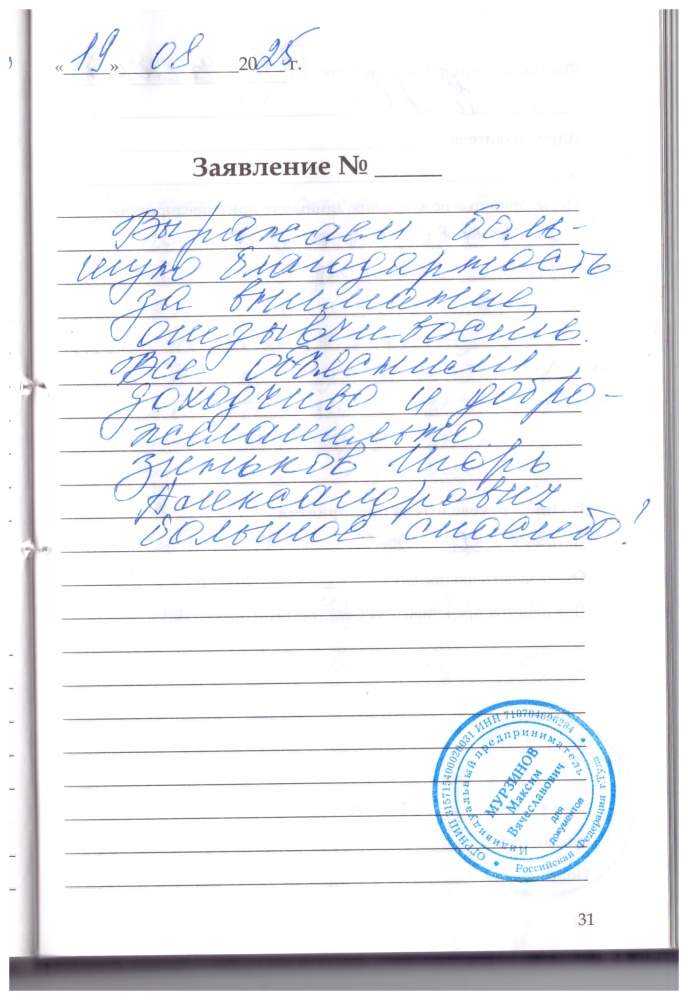 «19» 08 2025 г.
Заявление № ____
Выражаем боль-
шую благодарность
за внимание,
отзывчивость.
Все объяснили
доходчиво и добро-
желательно
Зиньков Игорь
Александрович
Большое спасибо!
ОГРНИП 315715400020031 ИНН 710704696284
Индивидуальный предприниматель
МУРЗИНОВ
Максим
Вячеславович
для
документов
Российская Федерация г.Тула
31